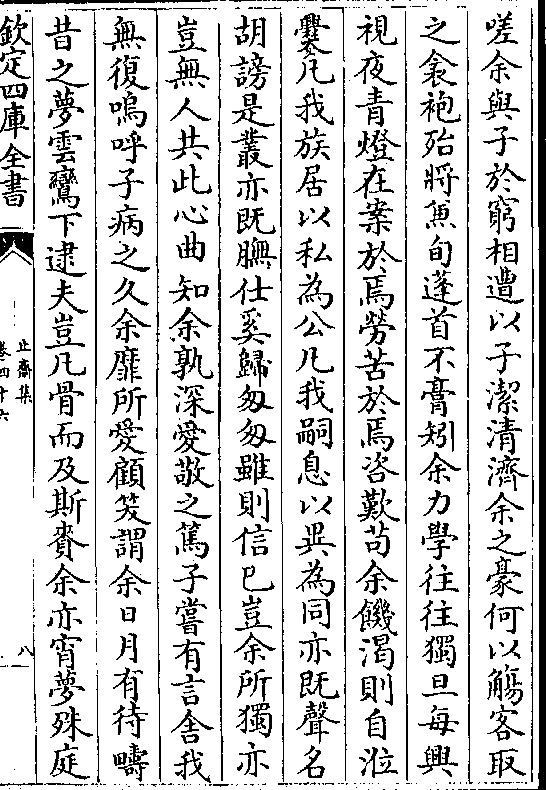 嗟余與子於窮相遭以子潔清濟余之豪何以觴客取
之衾袍殆將兼旬蓬首不膏矧余力學往往獨旦每興
視夜青燈在案於焉勞苦於焉咨歎苟余饑渴則自涖
爨凡我族居以私為公凡我嗣息以異為同亦既聲名
胡謗是叢亦既膴仕奚歸匆匆雖則信已豈余所獨亦
豈無人共此心曲知余孰深愛敬之篤子嘗有言舍我
無復嗚呼子病之久余靡所愛顧笑謂余日月有待疇
昔之夢雲鸞下逮夫豈凡骨而及斯賚余亦宵夢殊庭
欽定四庫全書
止齋集
卷四十六
八